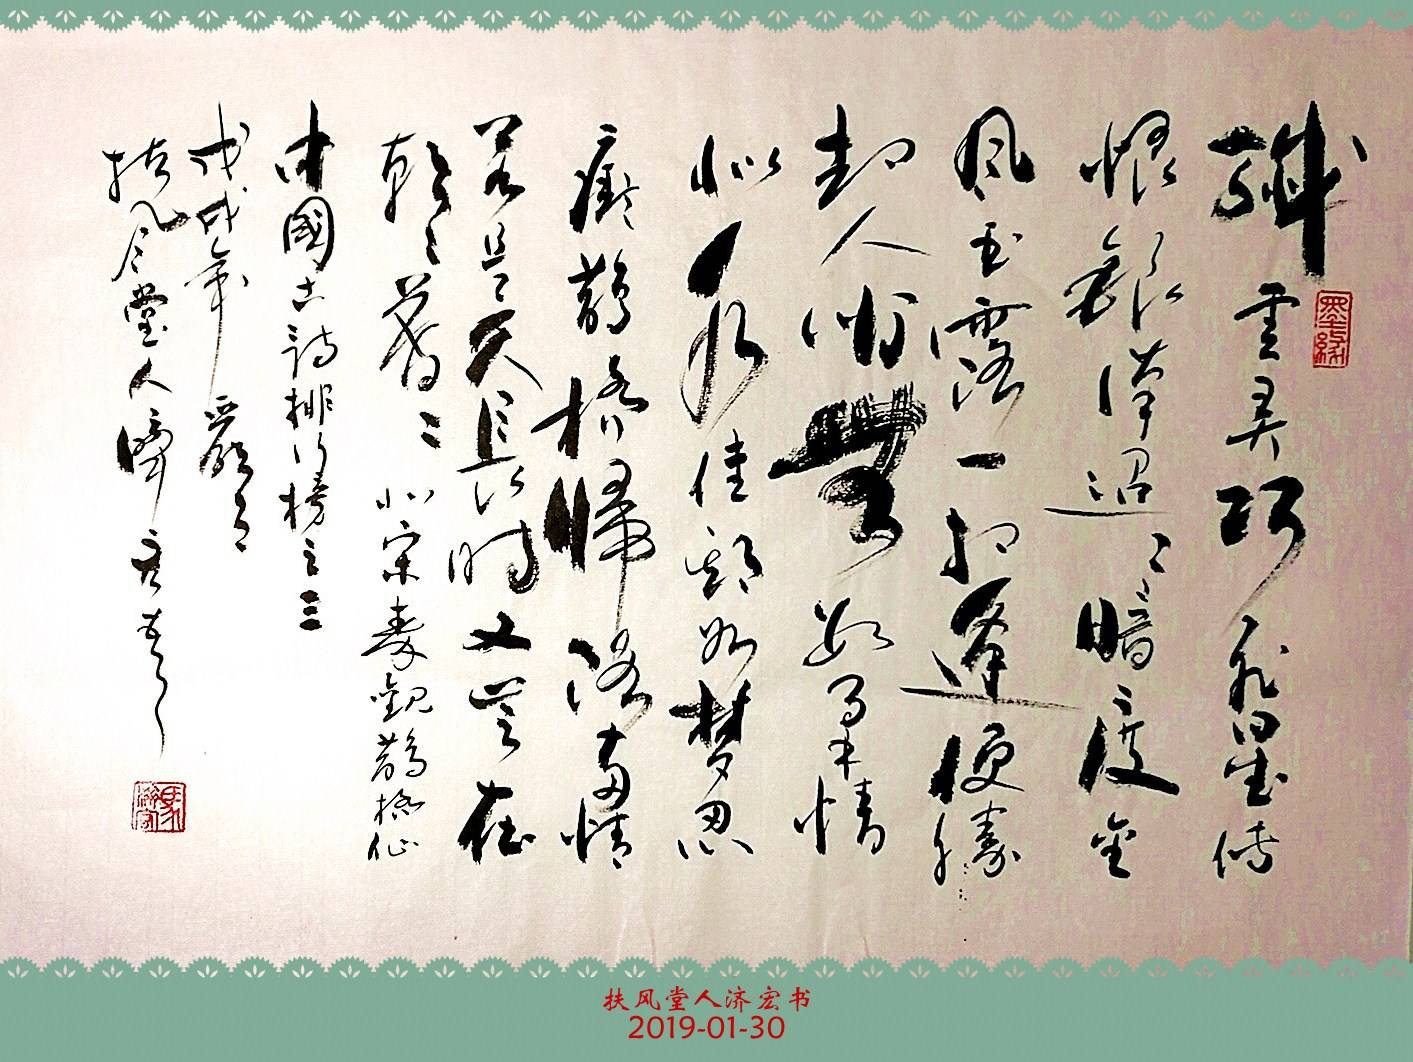 纖雲弄巧飛星传
恨銀漢迢〻暗度金
風玉露一相逢便勝
却人间無數柔情
似水佳期如梦忍
顧鵲橋歸路兩情
若是久長時又豈在
朝〻暮〻 北宋秦觀鵲橋仙
中國古詩排行榜之三
戊戌年 嚴冬
扶风堂人濟宏書
墨缘
扶风堂人济宏书
2019-01-30